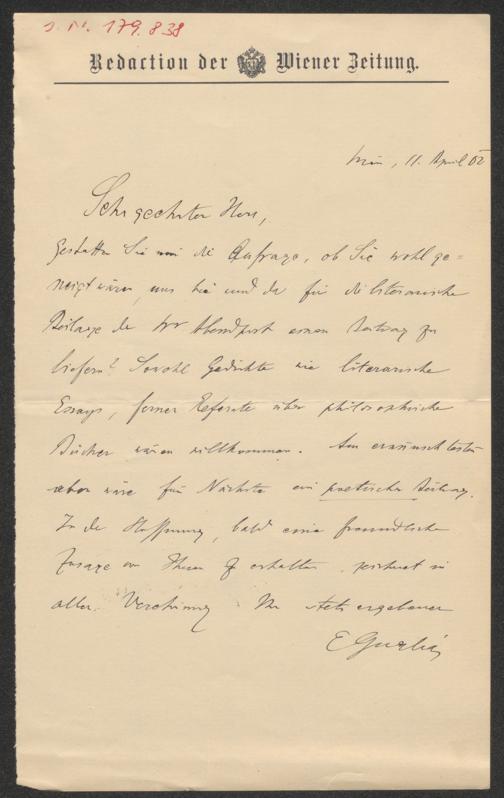 J. N. 179.838
Redaction der Wiener Zeitung.
Wien, 11. April 02
Sehr geehrter Herr,
Gestatten Sie mir die Anfrage, ob Sie wohl ge=
neigt wären, uns hie und da für die literarische
Beilage der Wr Abendpost einen Beitrag zu
liefern? Sowohl Gedichte wie literarische
Essays, ferner Referate über philosophische
Bücher wären willkommen. Am erwünschtesten
aber wäre für Nächste ein poetischer Beitrag.
In der Hoffnung, bald eine freundliche
Zusage von Ihnen zu erhalten, zeichnet in
aller Verehrung Ihr stets ergebener